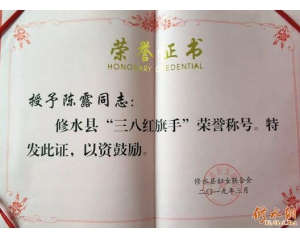 荣誉证书
HONORARY CREDENTIAL
授予陈露同志：
修水县“三八红旗手”荣誉称号。特
发此证，以资鼓励。
修水县妇女联合会
二〇一九年三月
修水网